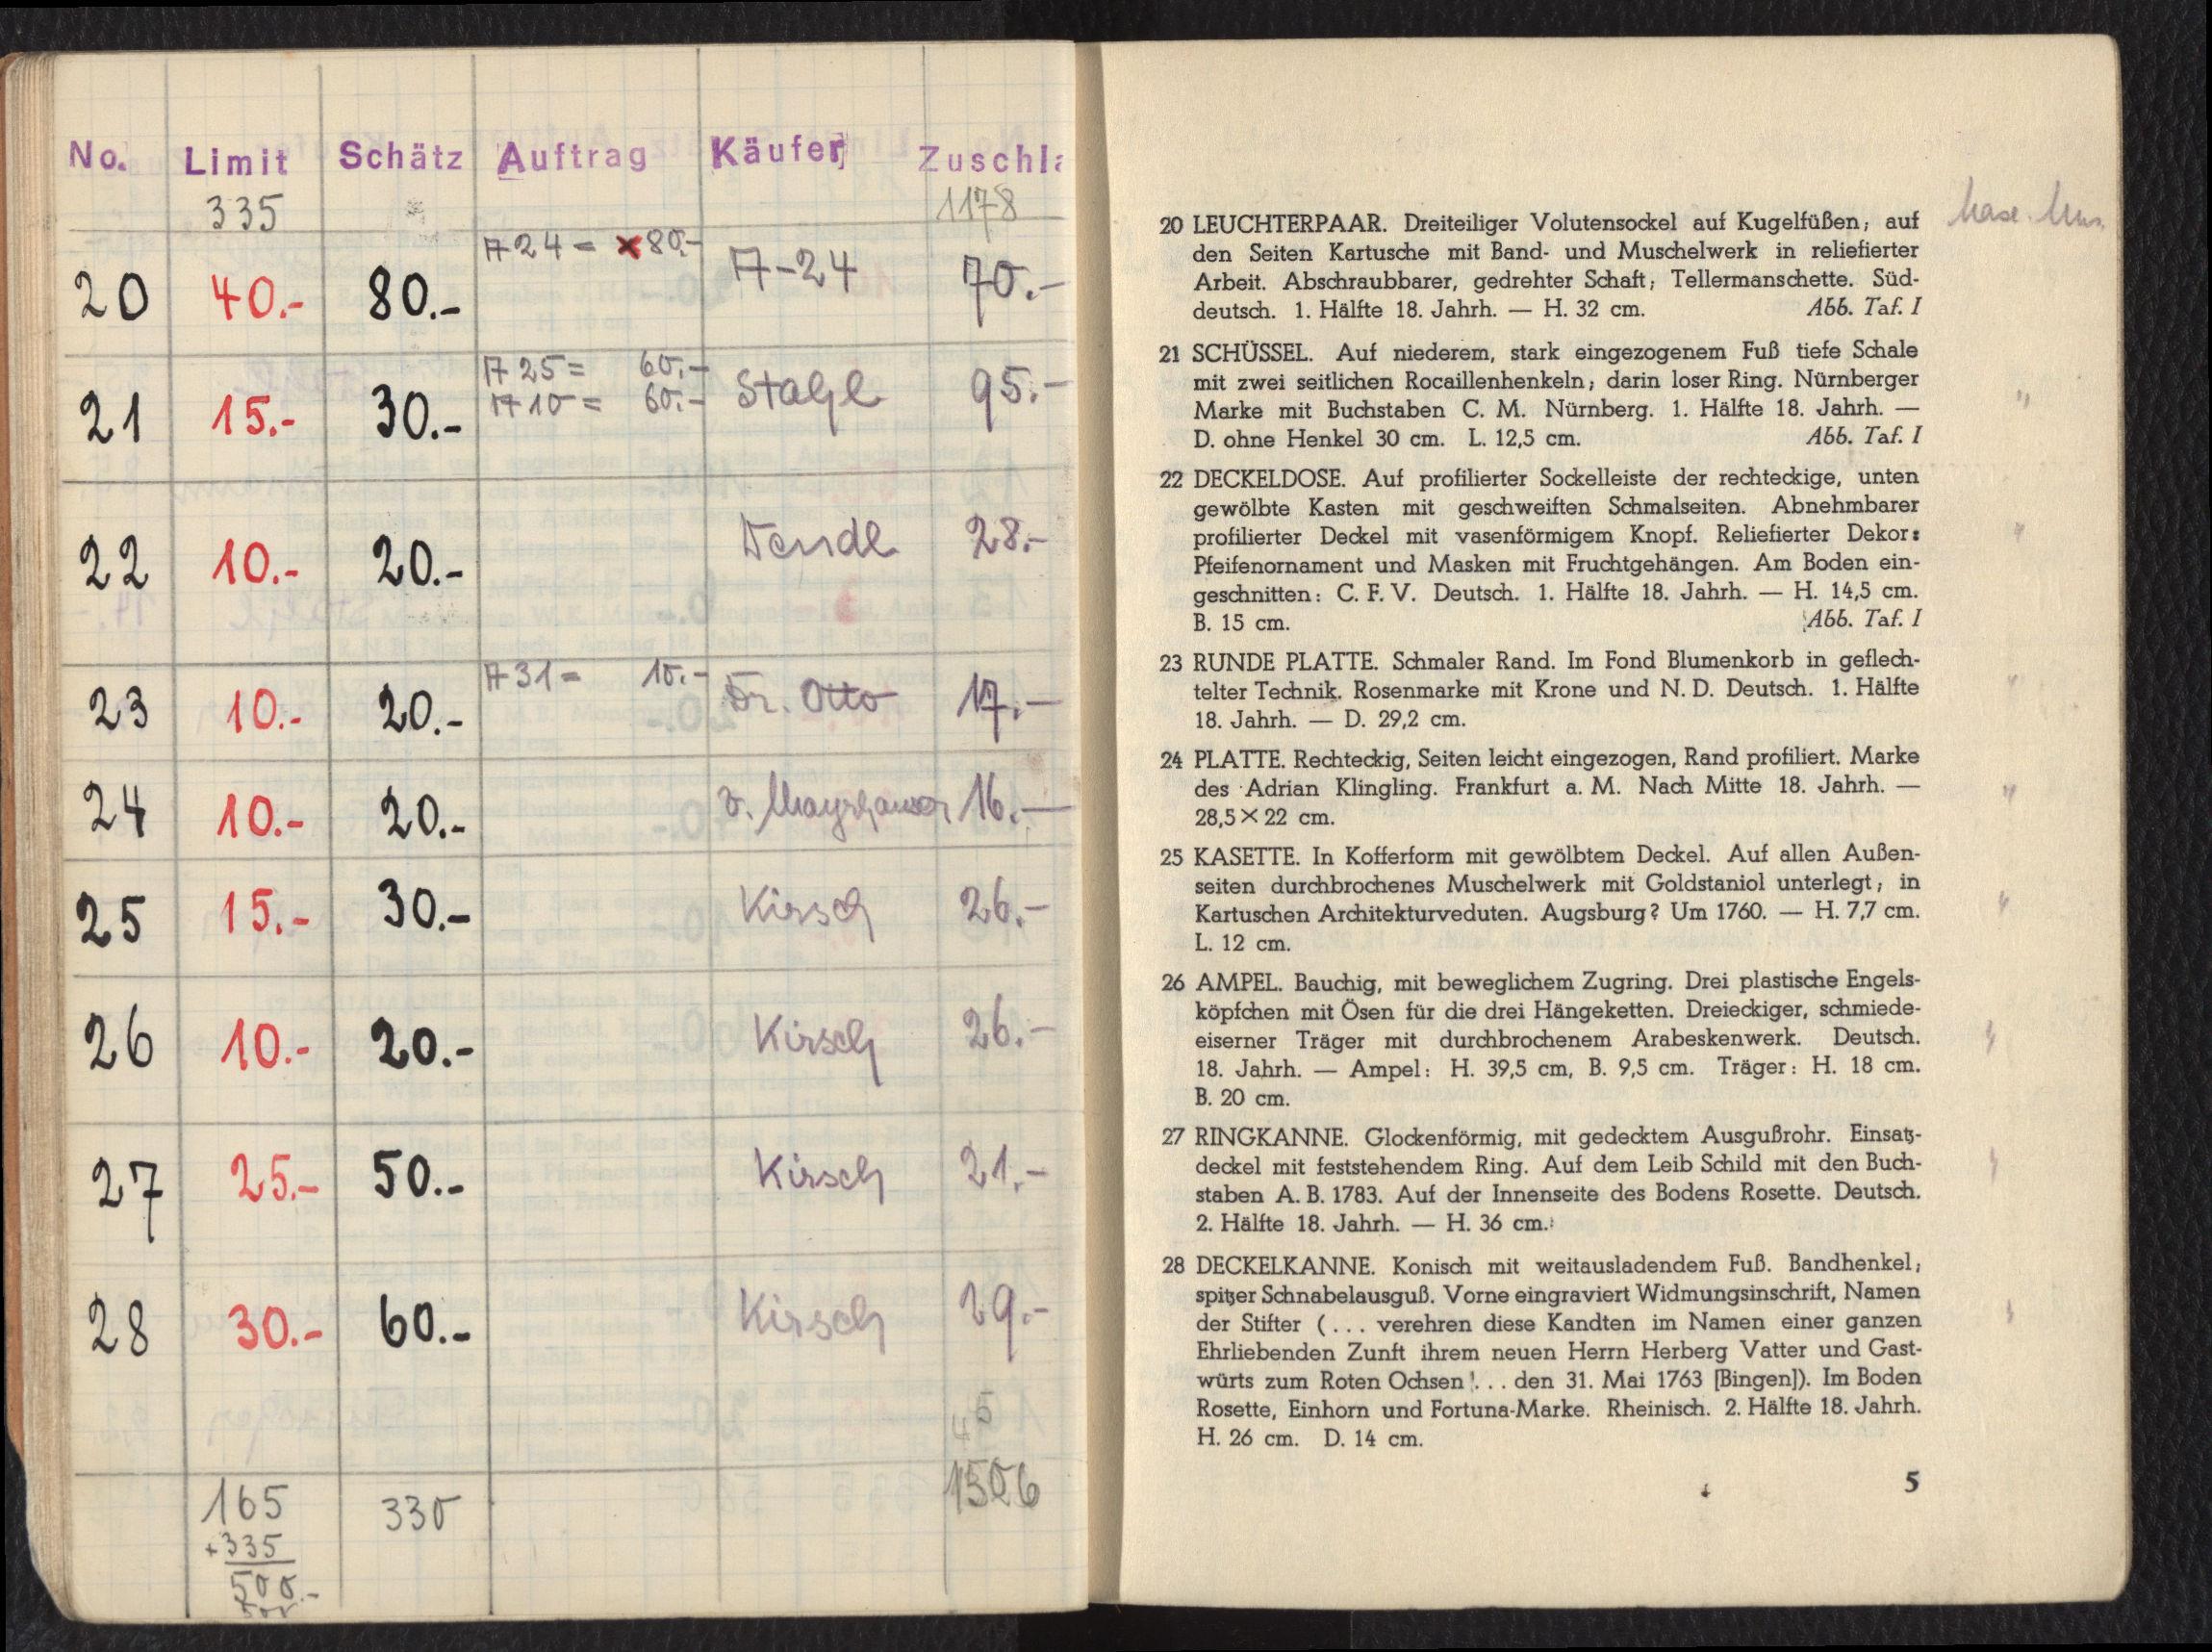 No. Limit Schätz Auftrag Käufer Zuschla
335 1178
A 24 = × 80.-
20 40.- 80.- A-24 70.-
A 25 = 60.-
A 10 = 60.-
21 15.- 30.- Stahl 95.-
22 10.- 20.- 28.-
A 31 = 10.-
23 10.- 20.- Dr. Otto 17.-
24 10.- 20.- v. 16.-
25 15.- 30.- Kirsch 26.-
26 10.- 20.- Kirsch 26.-
27 25.- 50.- Kirsch 21.-
28 30.- 60.- Kirsch 29.-
165 330 1506
+335
500.-
20 LEUCHTERPAAR. Dreiteiliger Volutensockel auf Kugelfüßen; auf
den Seiten Kartusche mit Band- und Muschelwerk in reliefierter
Arbeit. Abschraubbarer, gedrehter Schaft; Tellermanschette. Süd-
deutsch. 1. Hälfte 18. Jahrh. — H. 32 cm. Abb. Taf. I
21 SCHÜSSEL. Auf niederem, stark eingezogenem Fuß tiefe Schale
mit zwei seitlichen Rocaillenhenkeln; darin loser Ring. Nürnberger
Marke mit Buchstaben C. M. Nürnberg. 1. Hälfte 18. Jahrh. —
D. ohne Henkel 30 cm. L. 12,5 cm. Abb. Taf. I
22 DECKELDOSE. Auf profilierter Sockelleiste der rechteckige, unten
gewölbte Kasten mit geschweiften Schmalseiten. Abnehmbarer
profilierter Deckel mit vasenförmigem Knopf. Reliefierter Dekor:
Pfeifenornament und Masken mit Fruchtgehängen. Am Boden ein-
geschnitten: C. F. V. Deutsch. 1. Hälfte 18. Jahrh. — H. 14,5 cm.
B. 15 cm. Abb. Taf. I
23 RUNDE PLATTE. Schmaler Rand. Im Fond Blumenkorb in geflech-
telter Technik. Rosenmarke mit Krone und N. D. Deutsch. 1. Hälfte
18. Jahrh. — D. 29,2 cm.
24 PLATTE. Rechteckig, Seiten leicht eingezogen, Rand profiliert. Marke
des Adrian Klingling. Frankfurt a. M. Nach Mitte 18. Jahrh. —
28,5×22 cm.
25 KASETTE. In Kofferform mit gewölbtem Deckel. Auf allen Außen-
seiten durchbrochenes Muschelwerk mit Goldstaniol unterlegt; in
Kartuschen Architekturveduten. Augsburg? Um 1760. — H. 7,7 cm.
L. 12 cm.
26 AMPEL. Bauchig, mit beweglichem Zugring. Drei plastische Engels-
köpfchen mit Ösen für die drei Hängeketten. Dreieckiger, schmiede-
eiserner Träger mit durchbrochenem Arabeskenwerk. Deutsch.
18. Jahrh. — Ampel: H. 39,5 cm, B. 9,5 cm. Träger: H. 18 cm.
B. 20 cm.
27 RINGKANNE. Glockenförmig, mit gedecktem Ausgußrohr. Einsatz-
deckel mit feststehendem Ring. Auf dem Leib Schild mit den Buch-
staben A. B. 1783. Auf der Innenseite des Bodens Rosette. Deutsch.
2. Hälfte 18. Jahrh. — H. 36 cm.
28 DECKELKANNE. Konisch mit weitausladendem Fuß. Bandhenkel;
spitzer Schnabelausguß. Vorne eingraviert Widmungsinschrift, Namen
der Stifter (... verehren diese Kandten im Namen einer ganzen
Ehrliebenden Zunft ihrem neuen Herrn Herberg Vatter und Gast-
würts zum Roten Ochsen ... den 31. Mai 1763 [Bingen]). Im Boden
Rosette, Einhorn und Fortuna-Marke. Rheinisch. 2. Hälfte 18. Jahrh.
H. 26 cm. D. 14 cm.
5